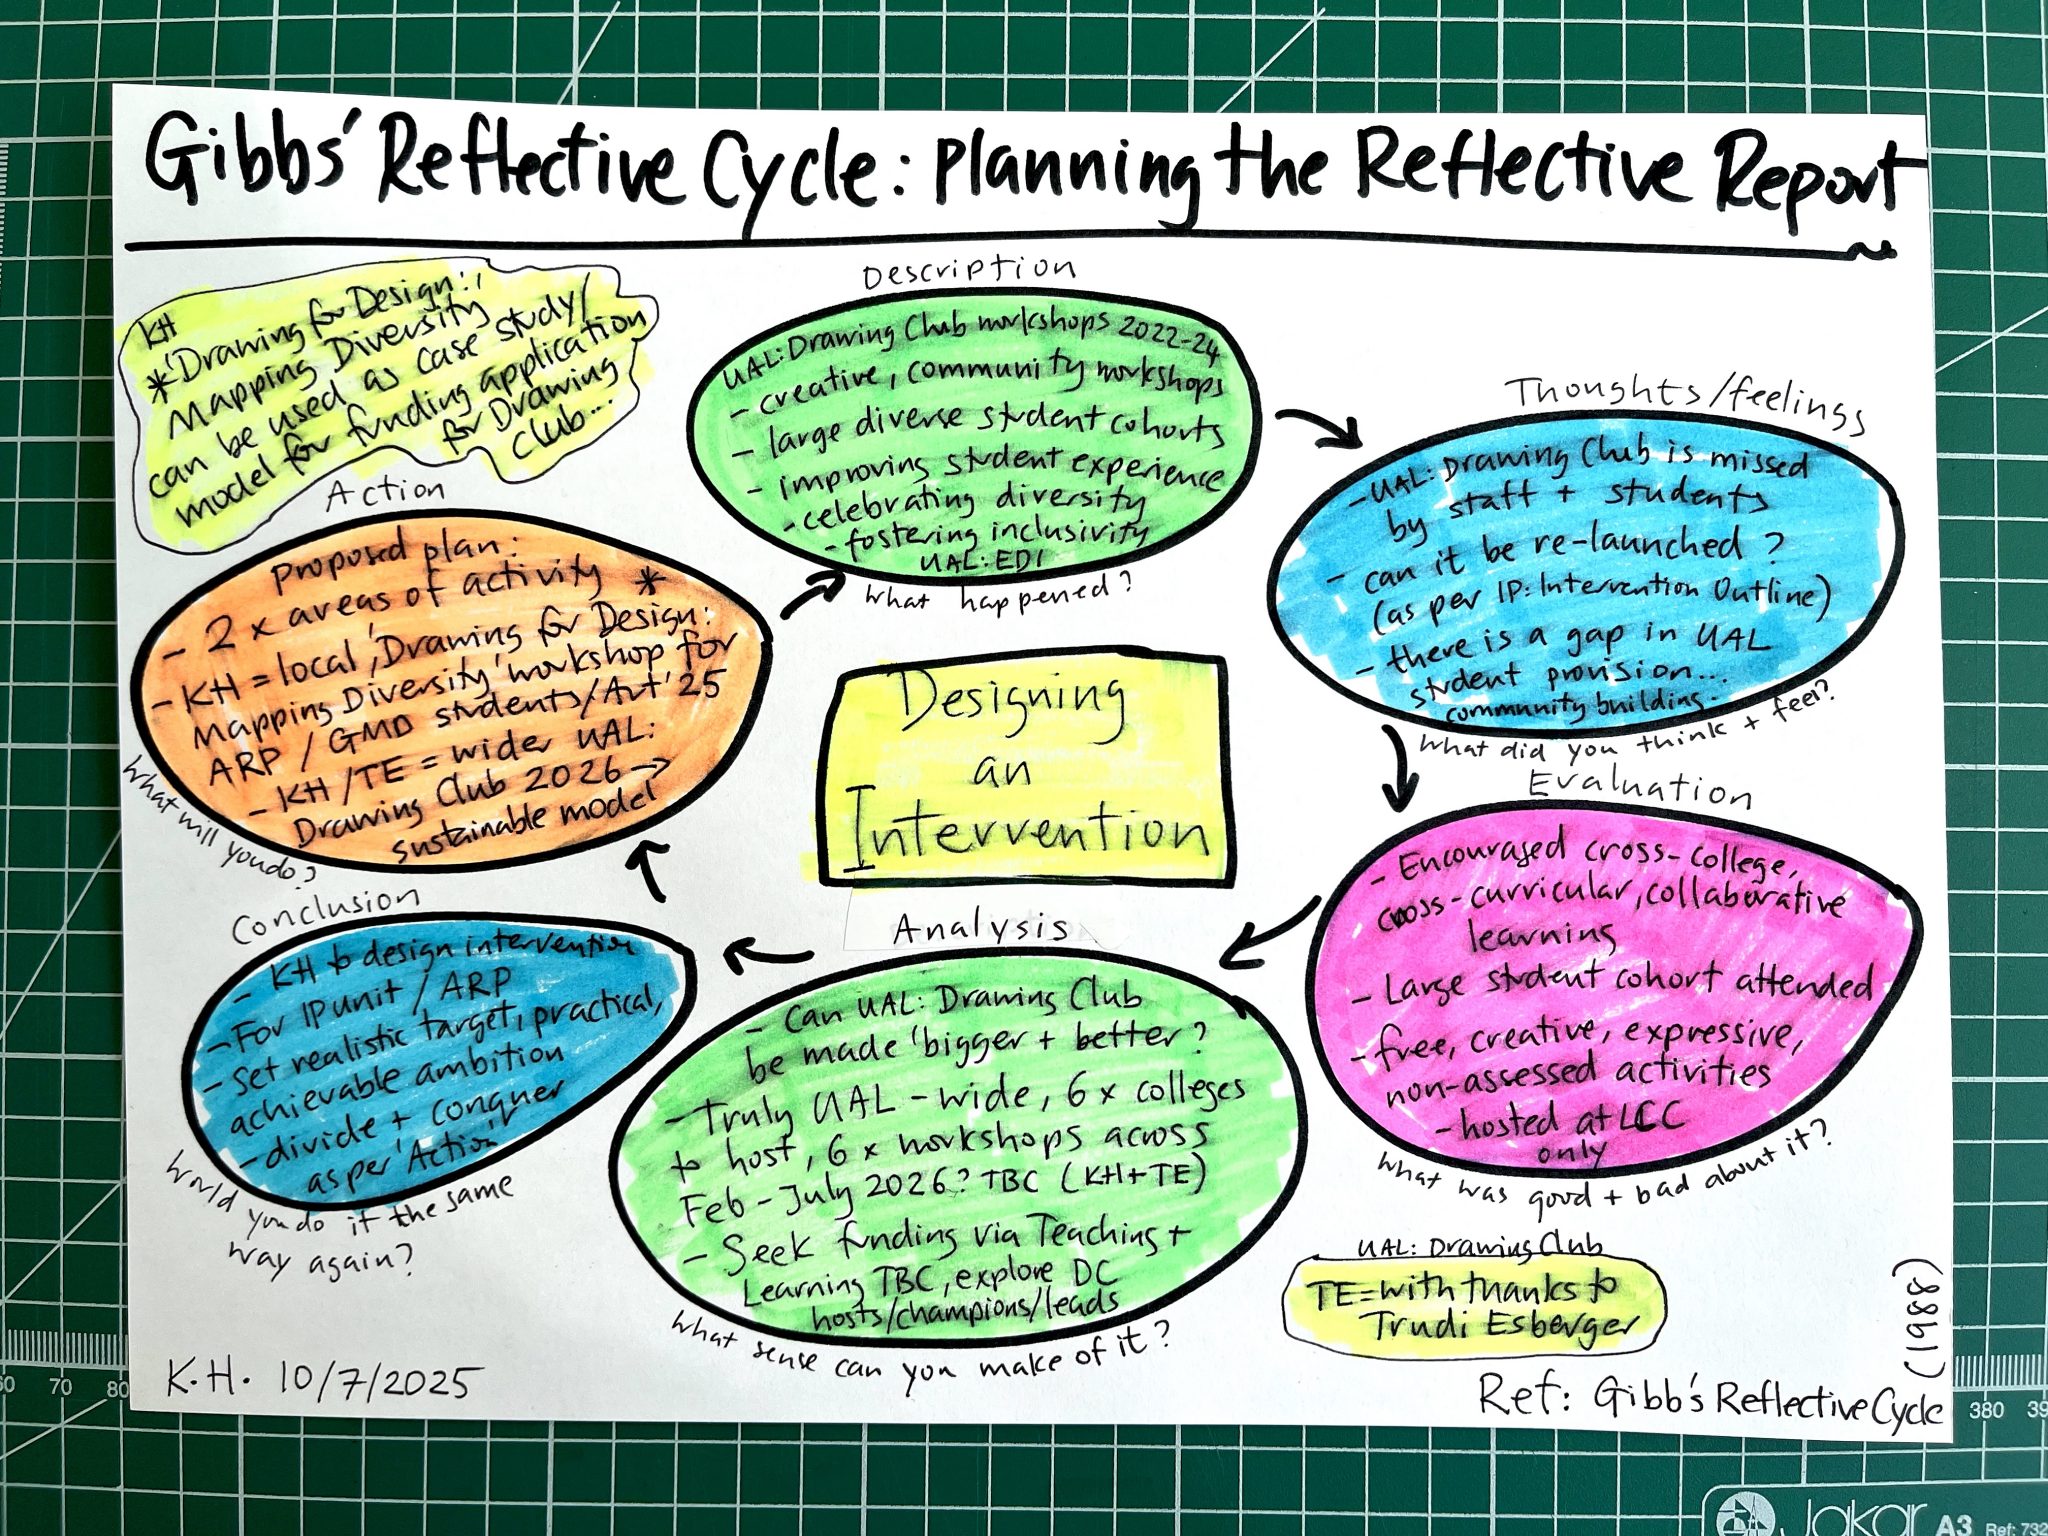 Gibbs' Reflective Cycle: Planning the Reflective Report
KH
*'Drawing for Design:
Mapping Diversity'
can be used as case study/
model for funding application
for Drawing
Club...
Description
UAL: Drawing Club workshops 2022-24
- creative, community workshops
- large diverse student cohorts
- improving student experience
- celebrating diversity
- fostering inclusivity
UAL: EDI
What happened?
Thoughts/feelings
- UAL: Drawing Club is missed
by staff + students
- can it be re-launched?
(as per IP: Intervention Outline)
- there is a gap in UAL
student provision...
community building.
What did you think + feel?
Evaluation
- Encouraged cross-college,
cross-curricular, collaborative
learning
- Large student cohort attended
- free, creative, expressive,
non-assessed activities
- hosted at LCC
only
What was good + bad about it?
Analysis
- Can UAL: Drawing Club
be made 'bigger + better?
- Truly UAL-wide, 6 x colleges
to host, 6 x workshops across
Feb - July 2026? TBC (KH+TE)
- Seek funding via Teaching +
Learning TBC, explore DC
hosts/champions/leads
What sense can you make of it?
Conclusion
- KH to design intervention
- For IP unit / ARP
- Set realistic target, practical,
achievable ambition
- divide + conquer
as per 'Action'
Would you do it the same
way again?
Action
Proposed plan:
- 2 x areas of activity *
- KH = local, 'Drawing for Design:
Mapping Diversity' workshop for
ARP / GMD students/Aut '25
- KH/TE = wider UAL:
Drawing Club 2026 →
sustainable model
What will you do?
Designing
an
Intervention
UAL: Drawing Club
TE = with thanks to
Trudi Esberger
K.H. 10/7/2025
Ref: Gibb's Reflective Cycle
(1988)
60 70 80
380 39
Jakar A3 Ref: 732